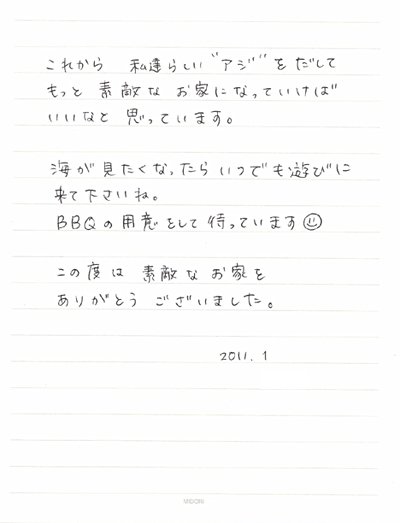 これから 私達らしい"アジ"をだして
もっと 素敵な お家になっていけば
いいなと 思っています。
海が見たくなったらいつでも遊びに
来て下さいね。
BBQの用意をして待っています☺
この度は 素敵な お家を
ありがとう ございました。
2011. 1
MIDORI